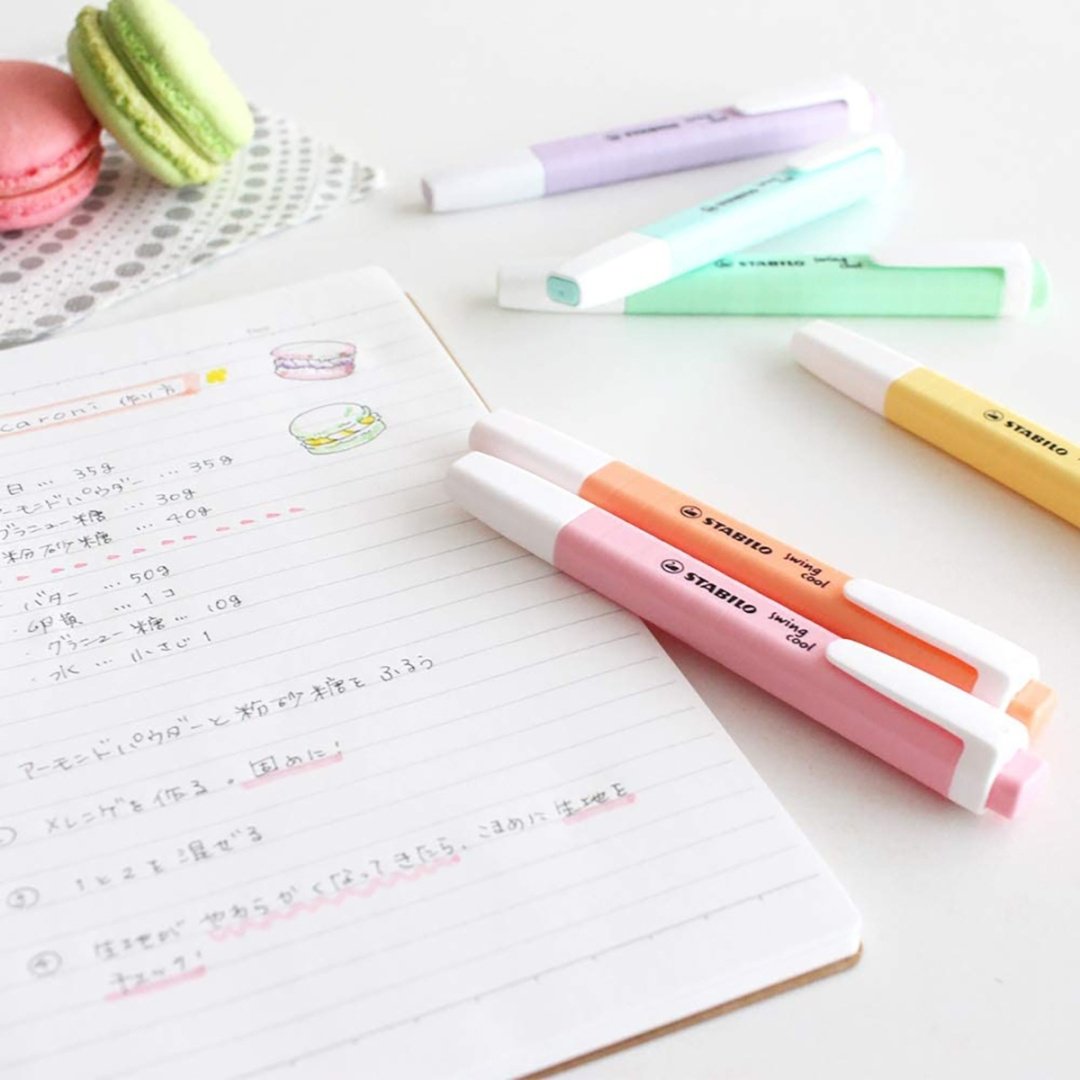 STABILO
STABILO
STABILO swing cool
STABILO
caroni 作り方
白 … 35g
アーモンドパウダー … 35g
グラニュー糖 … 30g
粉砂糖 … 40g
・バター … 50g
・卵黄 … 1コ
・グラニュー糖 … 10g
・水 … 小さじ1
アーモンドパウダーと粉砂糖をふるう
メレンゲを作る。固めに!
③ 1と2を混ぜる
④ 生地がやわらかくなってきたら、こまめに生地を
チェック!
STABILO swing cool
STABILO swing cool